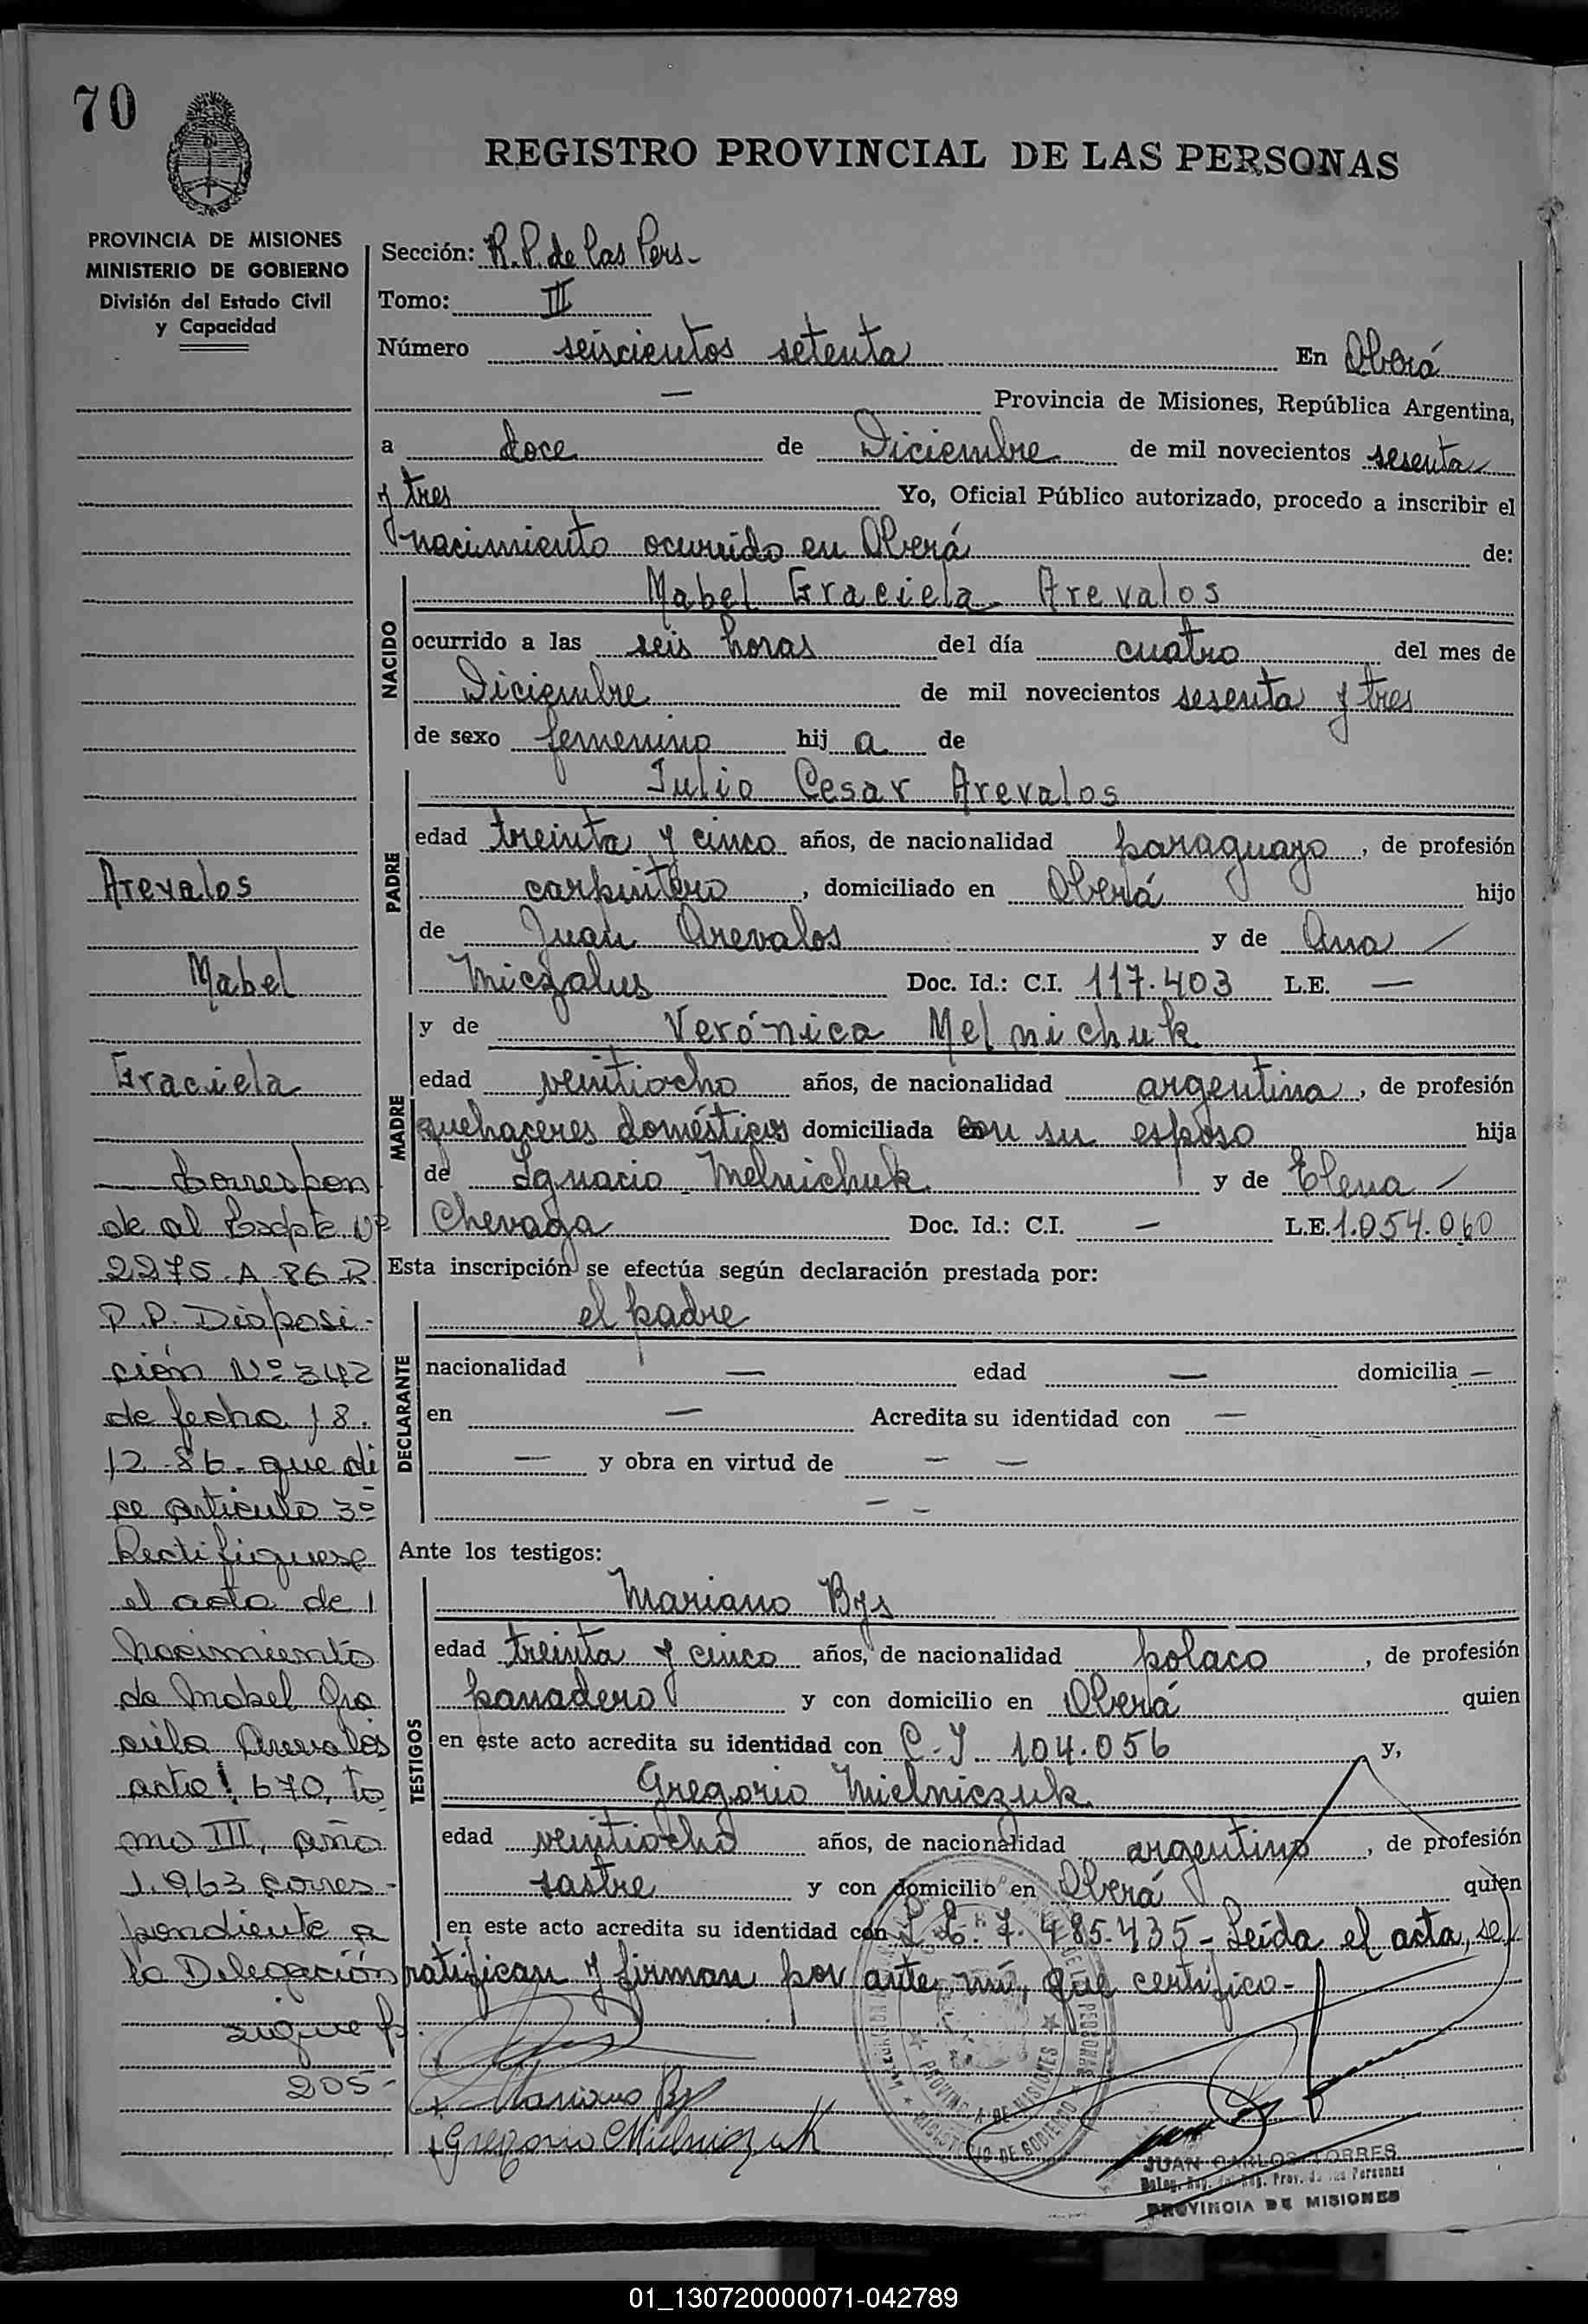 70
REGISTRO PROVINCIAL DE LAS PERSONAS
PROVINCIA DE MISIONES
MINISTERIO DE GOBIERNO
División del Estado Civil
y Capacidad
Sección: R.P. de las Pers-
Tomo: III
Número seiscientos setenta En Oberá
— Provincia de Misiones, República Argentina,
a doce de Diciembre de mil novecientos sesenta
y tres Yo, Oficial Público autorizado, procedo a inscribir el
nacimiento ocurrido en Oberá de:
NACIDO
Mabel Graciela Arevalos
ocurrido a las seis horas del día cuatro del mes de
Diciembre de mil novecientos sesenta y tres
de sexo femenino hij a de
PADRE
Julio Cesar Arevalos
edad treinta y cinco años, de nacionalidad paraguayo, de profesión
carpintero, domiciliado en Oberá hijo
de Juan Arevalos y de Ana
Miczalus Doc. Id.: C.I. 117.403 L.E. —
MADRE
y de Verónica Melnichuk
edad veintiocho años, de nacionalidad argentina, de profesión
quehaceres domésticos domiciliada con su esposo hija
de Ignacio Melnichuk y de Elena
Chevaga Doc. Id.: C.I. — L.E. 1.054.060
Esta inscripción se efectúa según declaración prestada por:
DECLARANTE
el padre
nacionalidad — edad — domicilia —
en — Acredita su identidad con —
— y obra en virtud de — —
— -
Ante los testigos:
TESTIGOS
Mariano Bys
edad treinta y cinco años, de nacionalidad polaco, de profesión
panadero y con domicilio en Oberá quien
en este acto acredita su identidad con C.I. 104.056 y,
Gregorio Mielniczuk
edad veintiocho años, de nacionalidad argentino, de profesión
sastre y con domicilio en Oberá quien
en este acto acredita su identidad con L.E. 7.485.435- Leída el acta, se
ratifican y firman por ante mí, que certifico-
Mariano Bys
Gregorio Mielniczuk
JUAN CARLOS TORRES
PROVINCIA DE MISIONES
Arevalos
Mabel
Graciela
Correspon
de al Expte Nº
2275-A-86 R
P.P. Disposi-
ción Nº 342
de fecha 18.
12-86- que di
ce artículo 3º
Rectifiquese
el acta de
Nacimiento
de Mabel Gra
ciela Arevalos
acta 670, to
mo III, año
1.963 corres-
pondiente a
la Delegación
sigue f.
205-
PROVINCIA DE MISIONES
01_130720000071-042789